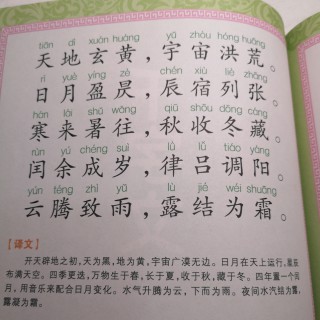 tiān dì xuán huáng yǔ zhòu hóng huāng
天地玄黄，宇宙洪荒。
rì yuè yíng zè chén xiù liè zhāng
日月盈昃，辰宿列张。
hán lái shǔ wǎng qiū shōu dōng cáng
寒来暑往，秋收冬藏。
rùn yú chéng suì lǜ lǚ tiáo yáng
闰余成岁，律吕调阳。
yún téng zhì yǔ lù jié wéi shuāng
云腾致雨，露结为霜。
【译文】
开天辟地之初，天为黑，地为黄，宇宙广漠无边。日月在天上运行，星辰
布满天空。四季更迭，万物生于春，长于夏，收于秋，藏于冬。四年置一个闰
月，用音乐来配合日月变化。水气升腾为云，下而为雨。夜间水汽结为露，
露凝为霜。